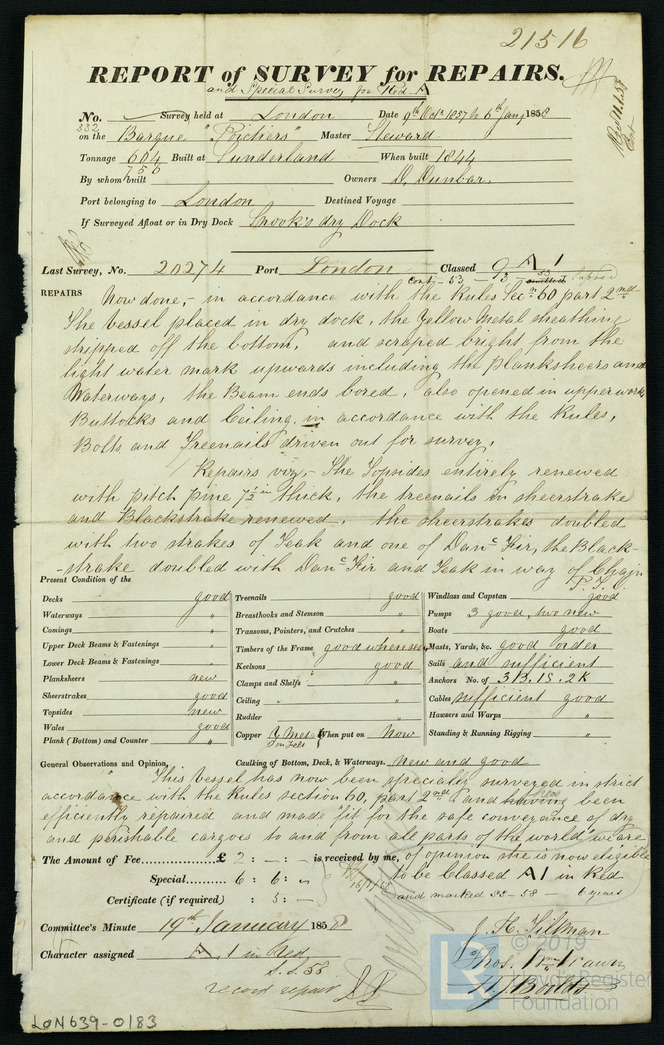 21516
REPORT of SURVEY for REPAIRS.
and Special Survey for Red A
No. 332 Survey held at London Date 9th Octr 1857 to 6th Jany 1858
on the Barque "Poictiers" Master Steward
Tonnage 604 Built at Sunderland When built 1844
756
By whom built Owners D. Dunbar.
Port belonging to London Destined Voyage
If Surveyed Afloat or in Dry Dock Snook's dry Dock
Last Survey, No. 20274 Port London Classed 9 A 1
REPAIRS Now done, in accordance with the Rules Sec 60 part 2nd
The vessel placed in dry dock, the Yellow Metal sheathing
stripped off the bottom, and scraped bright from the
light water mark upwards including the plankshears and
Waterways, the Beam ends bored, also opened in upperworks
Buttocks and Ceiling in accordance with the Rules,
Bolts and Treenails driven out for survey.
Repairs viz, The Topsides entirely renewed
with pitch pine 7½ in thick, the treenails in sheerstrake
and Blackstrake renewed, the sheerstrakes doubled
with two strakes of Teak and one of Danc Fir, the Black-
-strake doubled with Danc Fir and Teak in way of Chain
P.T.O.
Present Condition of the
Decks good
Waterways "
Comings "
Upper Deck Beams & Fastenings "
Lower Deck Beams & Fastenings "
Planksheers new
Sheerstrakes good
Topsides new
Wales good
Plank (Bottom) and Counter "
Treenails good
Breasthooks and Stemson "
Transoms, Pointers, and Crutches "
Timbers of the Frame good where seen
Keelsons good
Clamps and Shelfs "
Ceiling "
Rudder "
Copper Y Metal When put on Now
on Felt
Windlass and Capstan good
Pumps 3 good, two new
Boats good
Masts, Yards, &c. good order
Sails and sufficient
Anchors No. of 3B, 1S, 2K
Cables sufficient good
Hawsers and Warps "
Standing & Running Rigging "
General Observations and Opinion, Caulking of Bottom, Deck, & Waterways. new and good
This vessel has now been specially surveyed in strict
accordance with the Rules section 60, part 2nd and having been
efficiently repaired and made fit for the safe conveyance of dry
and perishable cargoes to and from all parts of the world, we are
The Amount of Fee £ 2 : - : - is received by me, of opinion she is now eligible
Special 6 : 6 : - to be Classed A1 in Red
Certificate (if required) : 5 : - and marked 58 - 6 years
Committee's Minute 19th January 1858
Character assigned A. 1 in Red
S.S. 58
record repair
J. H. Tiltman
Thos.
© 2019
Lloyd's Register
Foundation
LR
LON639-0183